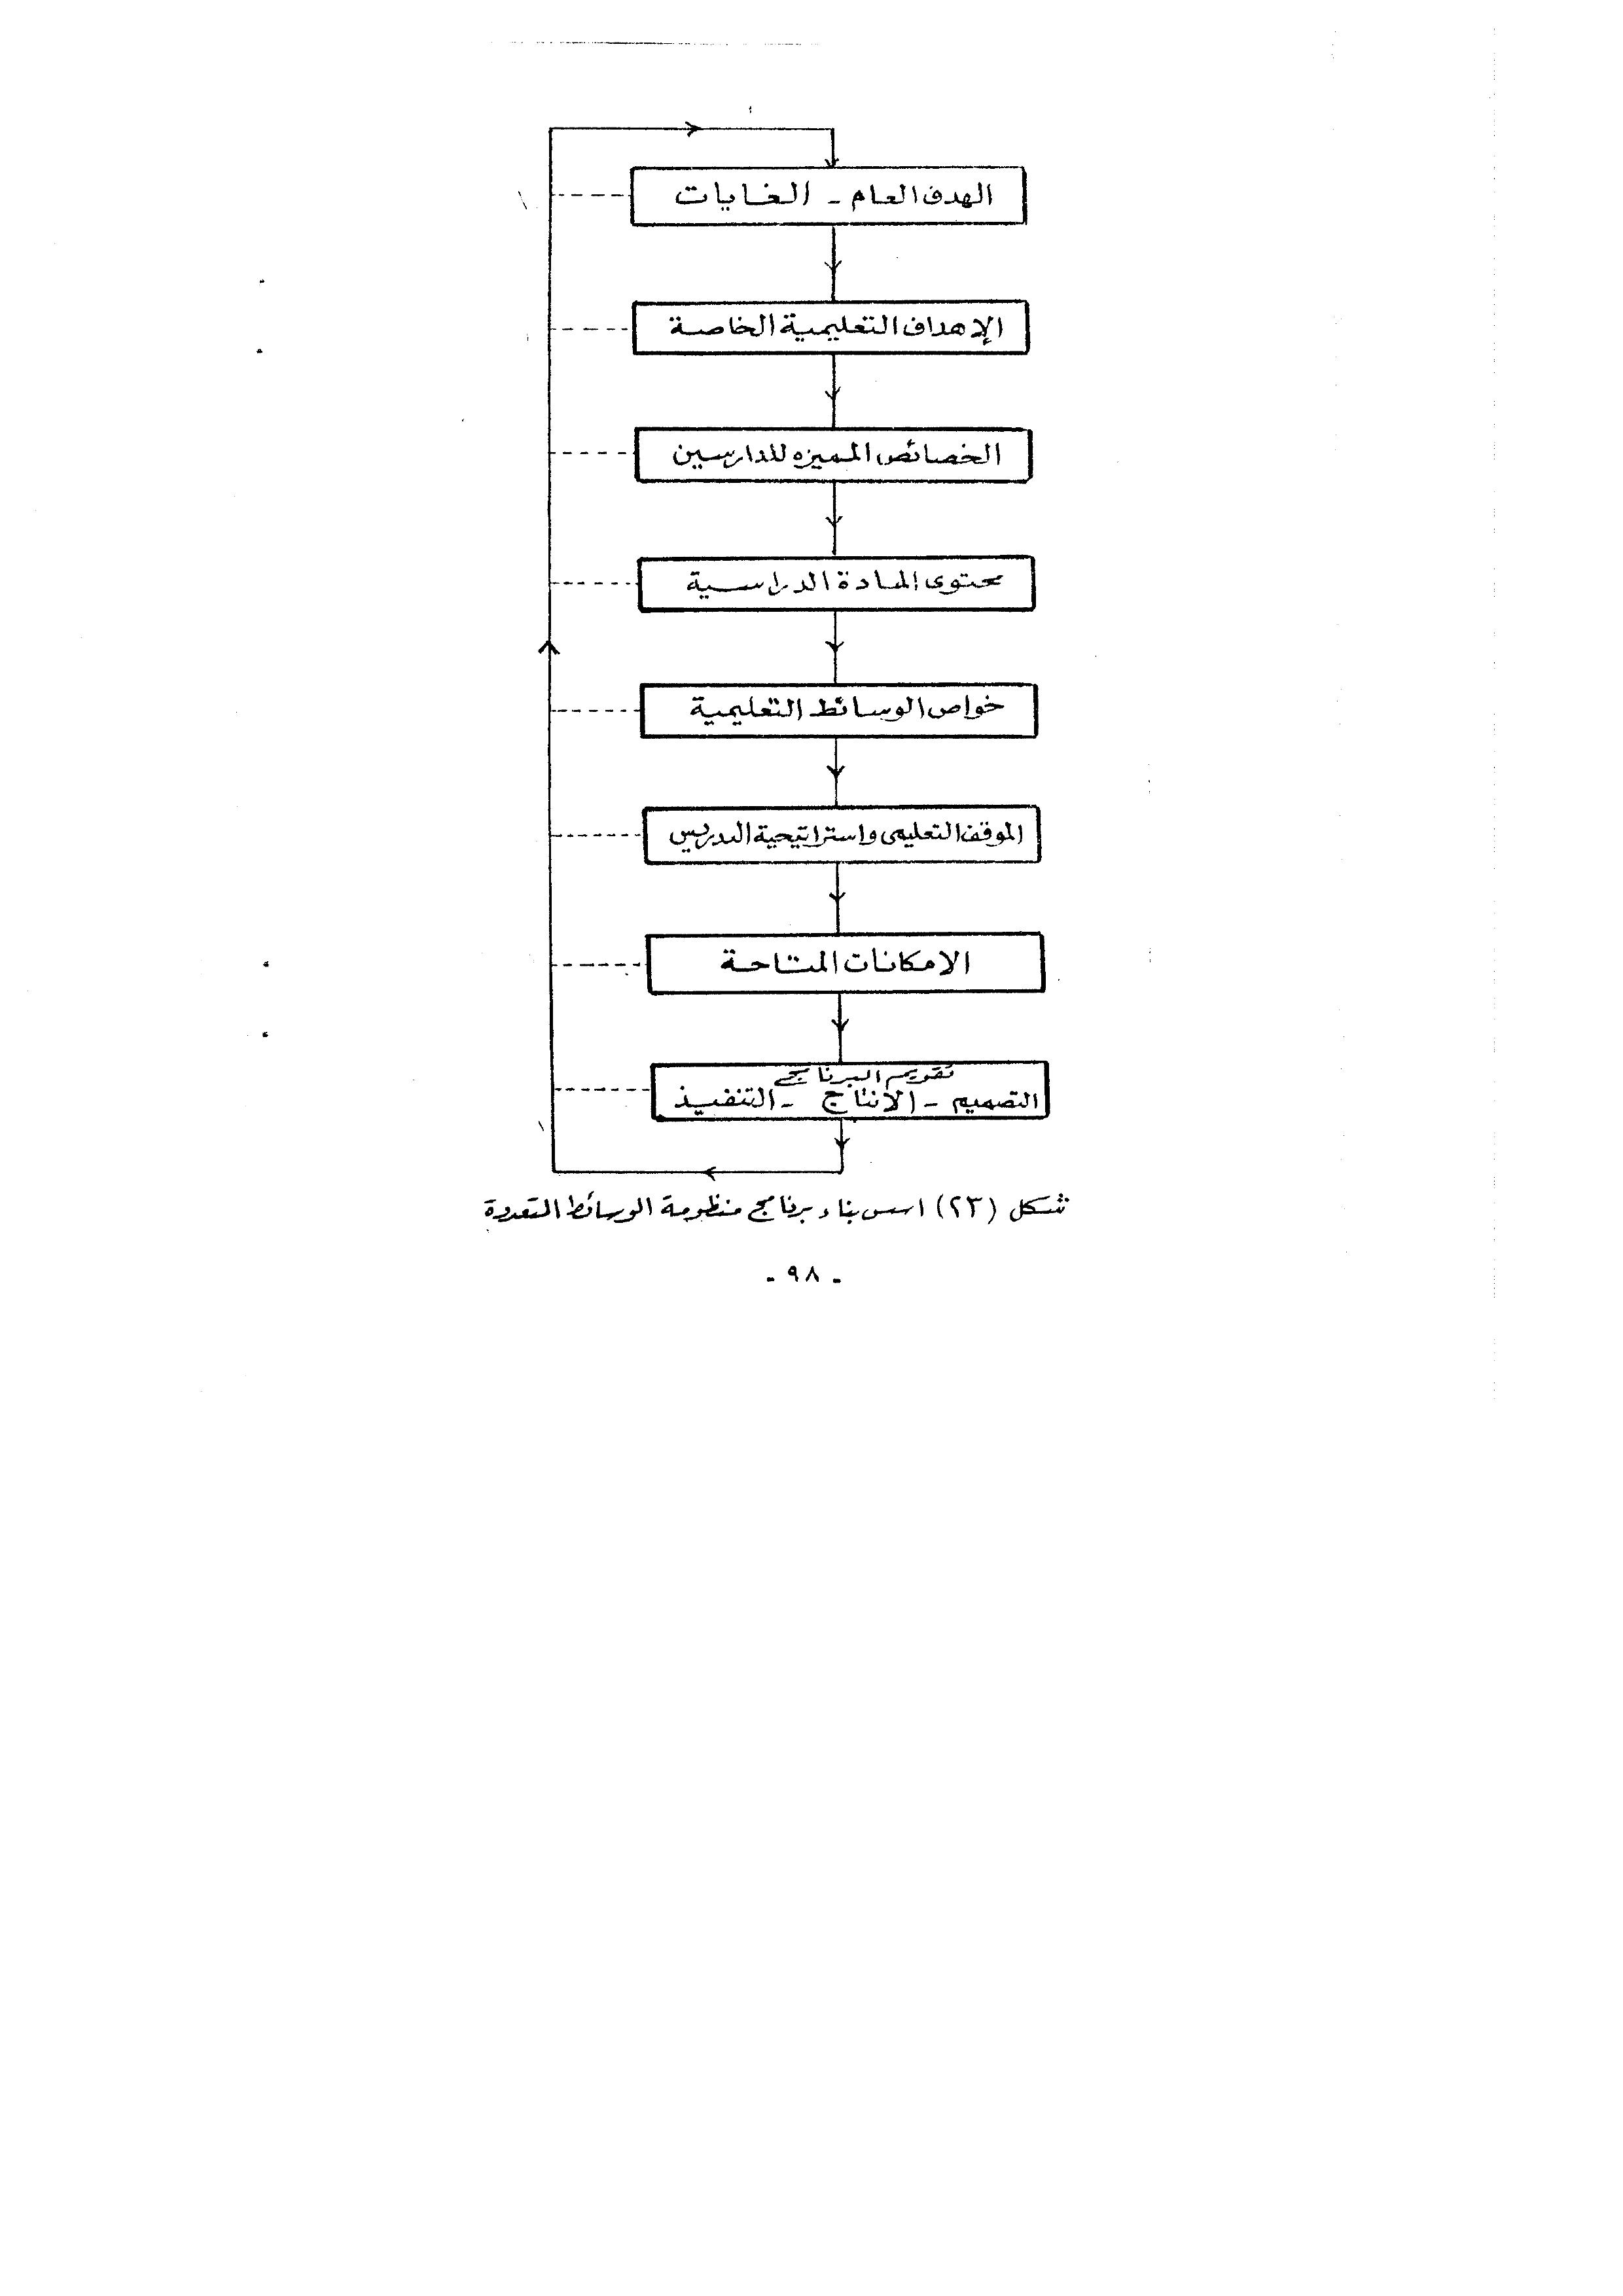 الهدف العام - الغايات
الإهداف التعليمية الخاصة
الخصائص المميزه للدارسين
محتوى المادة الدراسية
خواص الوسائط التعليمية
الموقف التعليمى واستراتيجية التدريس
الامكانات المتاحة
تقويم البرنامج
التصميم - الانتاج - التنفيذ
شكل (٢٣) اسس بناء برنامج منظومة الوسائط المتعددة
- ٩٨ -